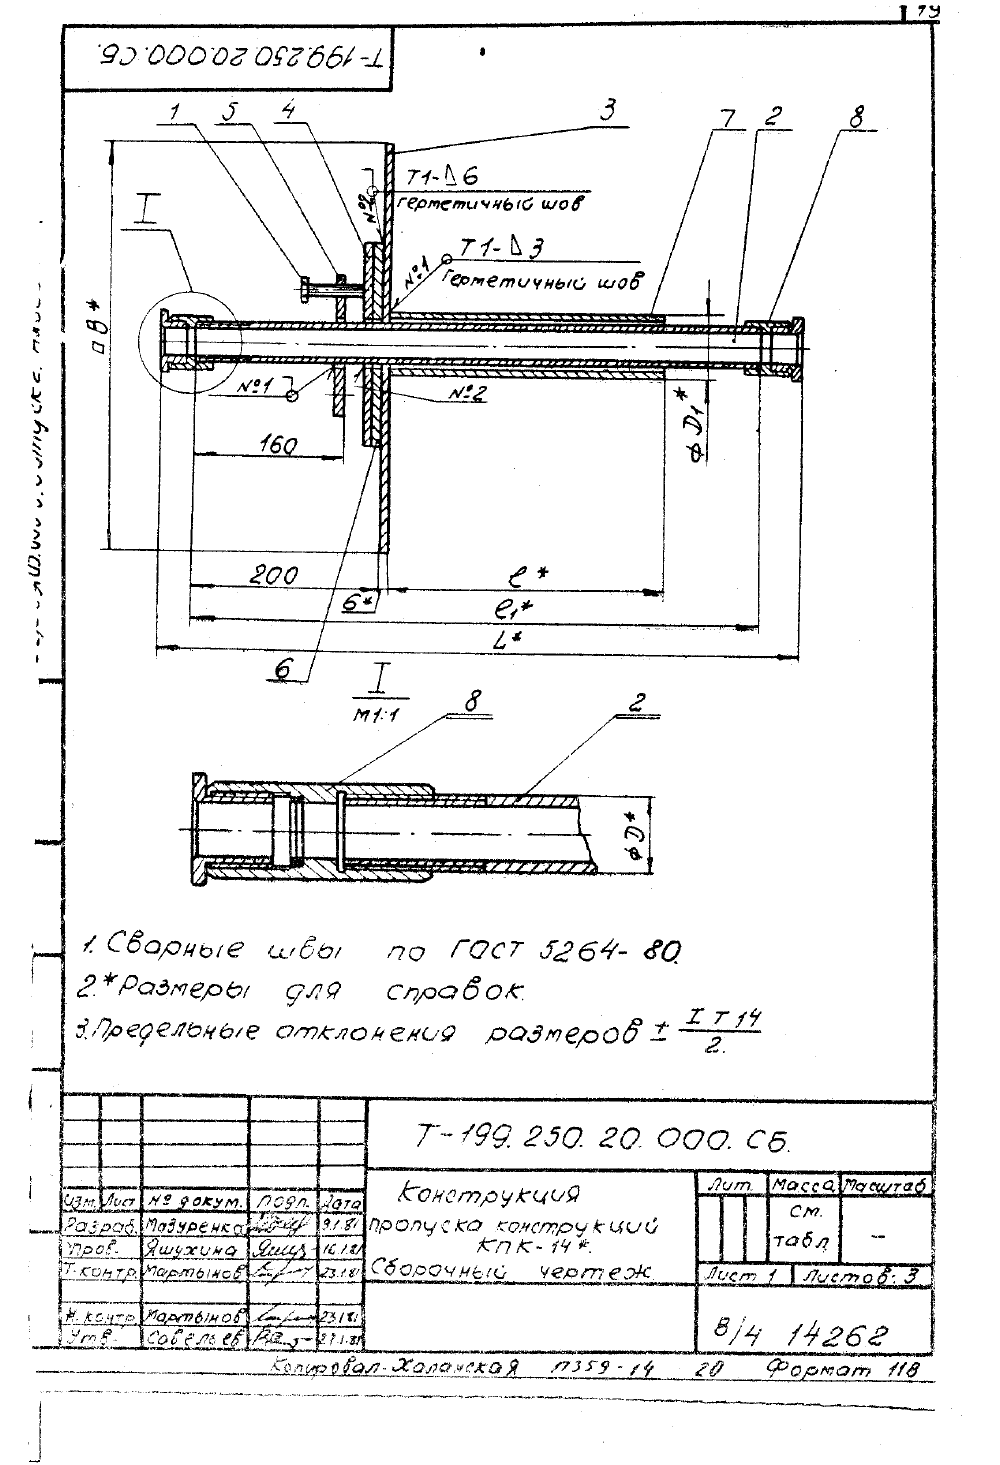 19
Т-199.250.20.000.СБ.
1 5 4 3 7 2 8
Т1-⊿6
герметичный шов
№2
Т1-⊿3
№1
герметичный шов
I
□В*
№1
№2
160
⌀D₁*
200
ℓ*
6*
ℓ₁*
L*
6
I
М1:1
8
2
⌀D*
1. Сварные швы по ГОСТ 5264-80.
2.* Размеры для справок.
3. Предельные отклонения размеров ± IT14/2.
Т-199.250.20.000.СБ.
Изм. Лист № докум. Подп. Дата
Разраб. Мазуренка 9.1.81
Пров. Яшухина 16.1.81
Т.контр. Мартынов 23.1.81
Н.контр. Мартынов 23.1.81
Утв. Савельев 27.1.81
Конструкция
пропуска конструкций
КПК-14*.
Сборочный чертеж
Лит. Масса Масштаб
см.
табл. –
Лист 1 Листов: 3
8/4 14262
Копировал- П359-14 20 Формат 11В